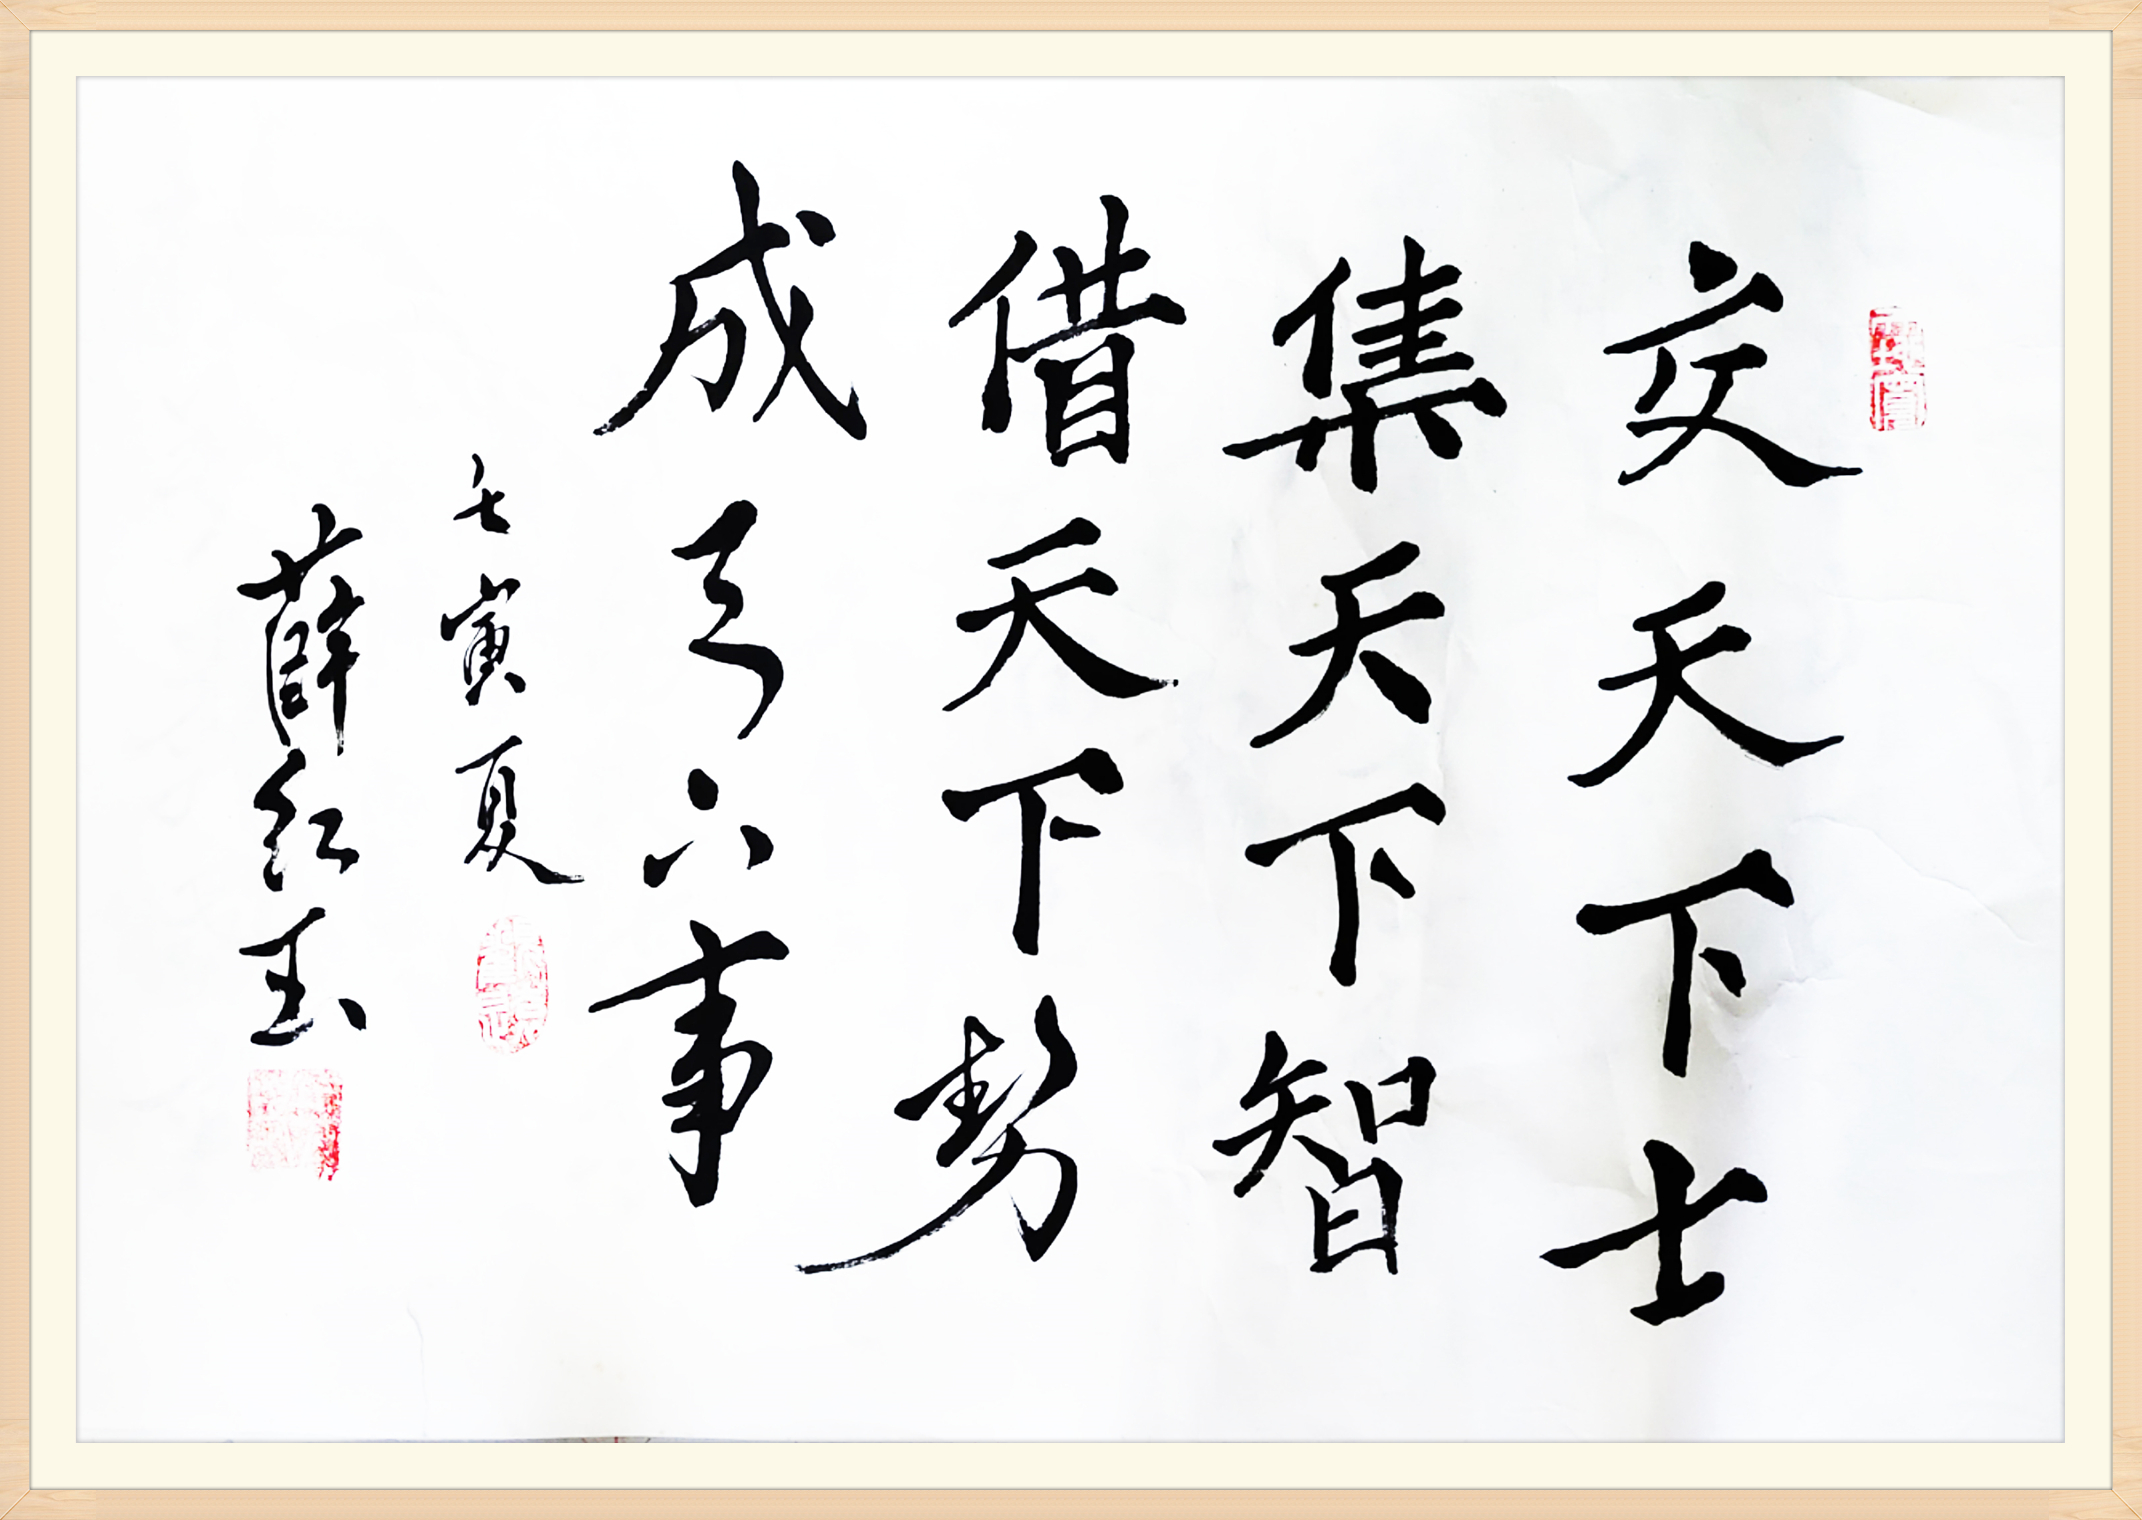 交天下士
集天下智
借天下势
成天下事
壬寅夏
薛红玉